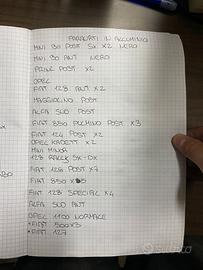 PARAURTI IN ALLUMINIO
MINI 90 POST SX X2 NERO
MINI 90 ANT NERO
PRINZ POST X2
OPEL
FIAT 128 ANT X2
MAGGIOLINO POST
ALFA SUD POST
FIAT 850 PULMINO POST X3
FIAT 124 POST X2
OPEL KADETT X2
MINI MINOR
128 RALLY SX-DX
FIAT 126 POST X7
FIAT 850 X5
FIAT 128 SPECIAL X4
ALFA SUD ANT
OPEL 1100 NORMALE
FIAT 500 X3
FIAT 127
subito